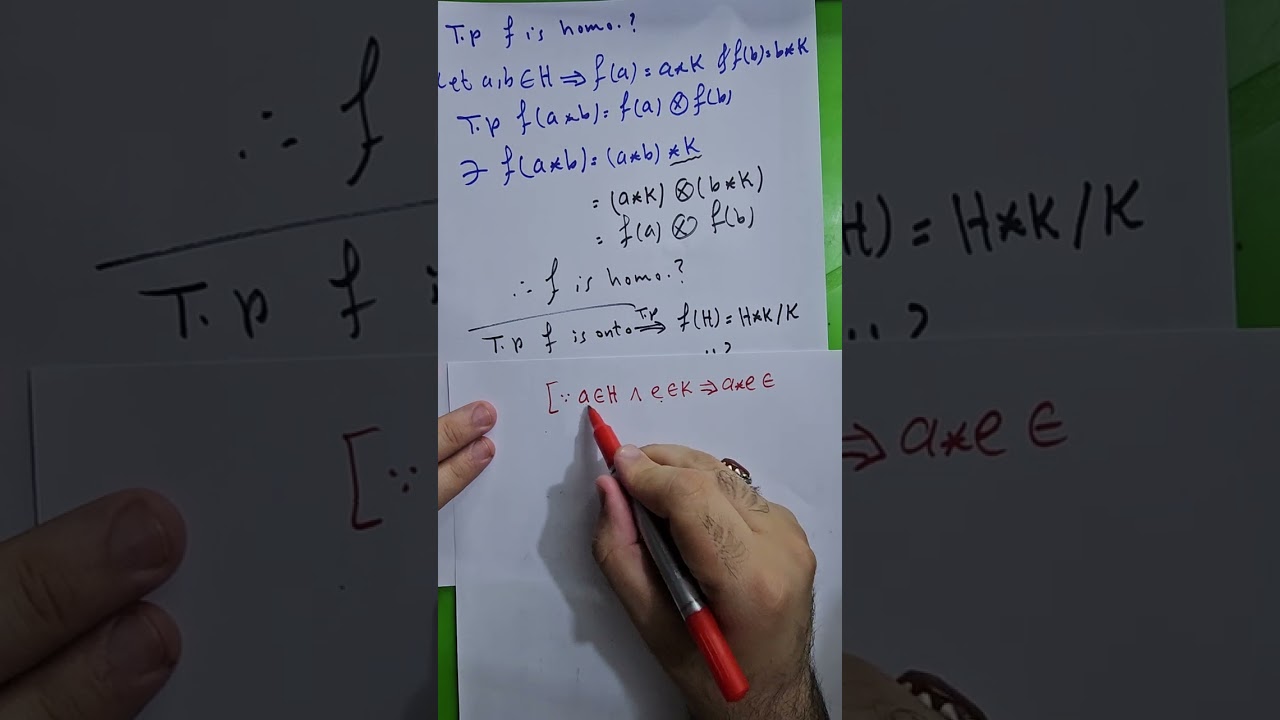 T.p f is homo.?
Let a,b ∈ H ⇒ f(a) = a*K & f(b) = b*K
T.p f(a*b) = f(a) ⊗ f(b)
∋ f(a*b) = (a*b) *K
= (a*K) ⊗ (b*K)
= f(a) ⊗ f(b)
∴ f is homo.?
T.p f is onto ⇒ T.p f(H) = H*K/K
[∵ a∈H ∧ e∈K ⇒ a*e ∈